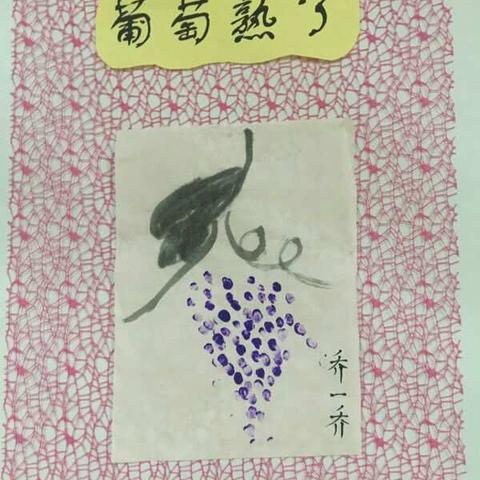 葡萄熟了
乔一乔